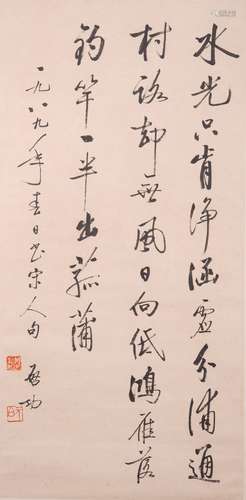 水光只肯浄涵虚分浦通
村路却無風日向低鴻雁落
釣竿一半出菰蒲
一九八九年春日書宋人句
啟功